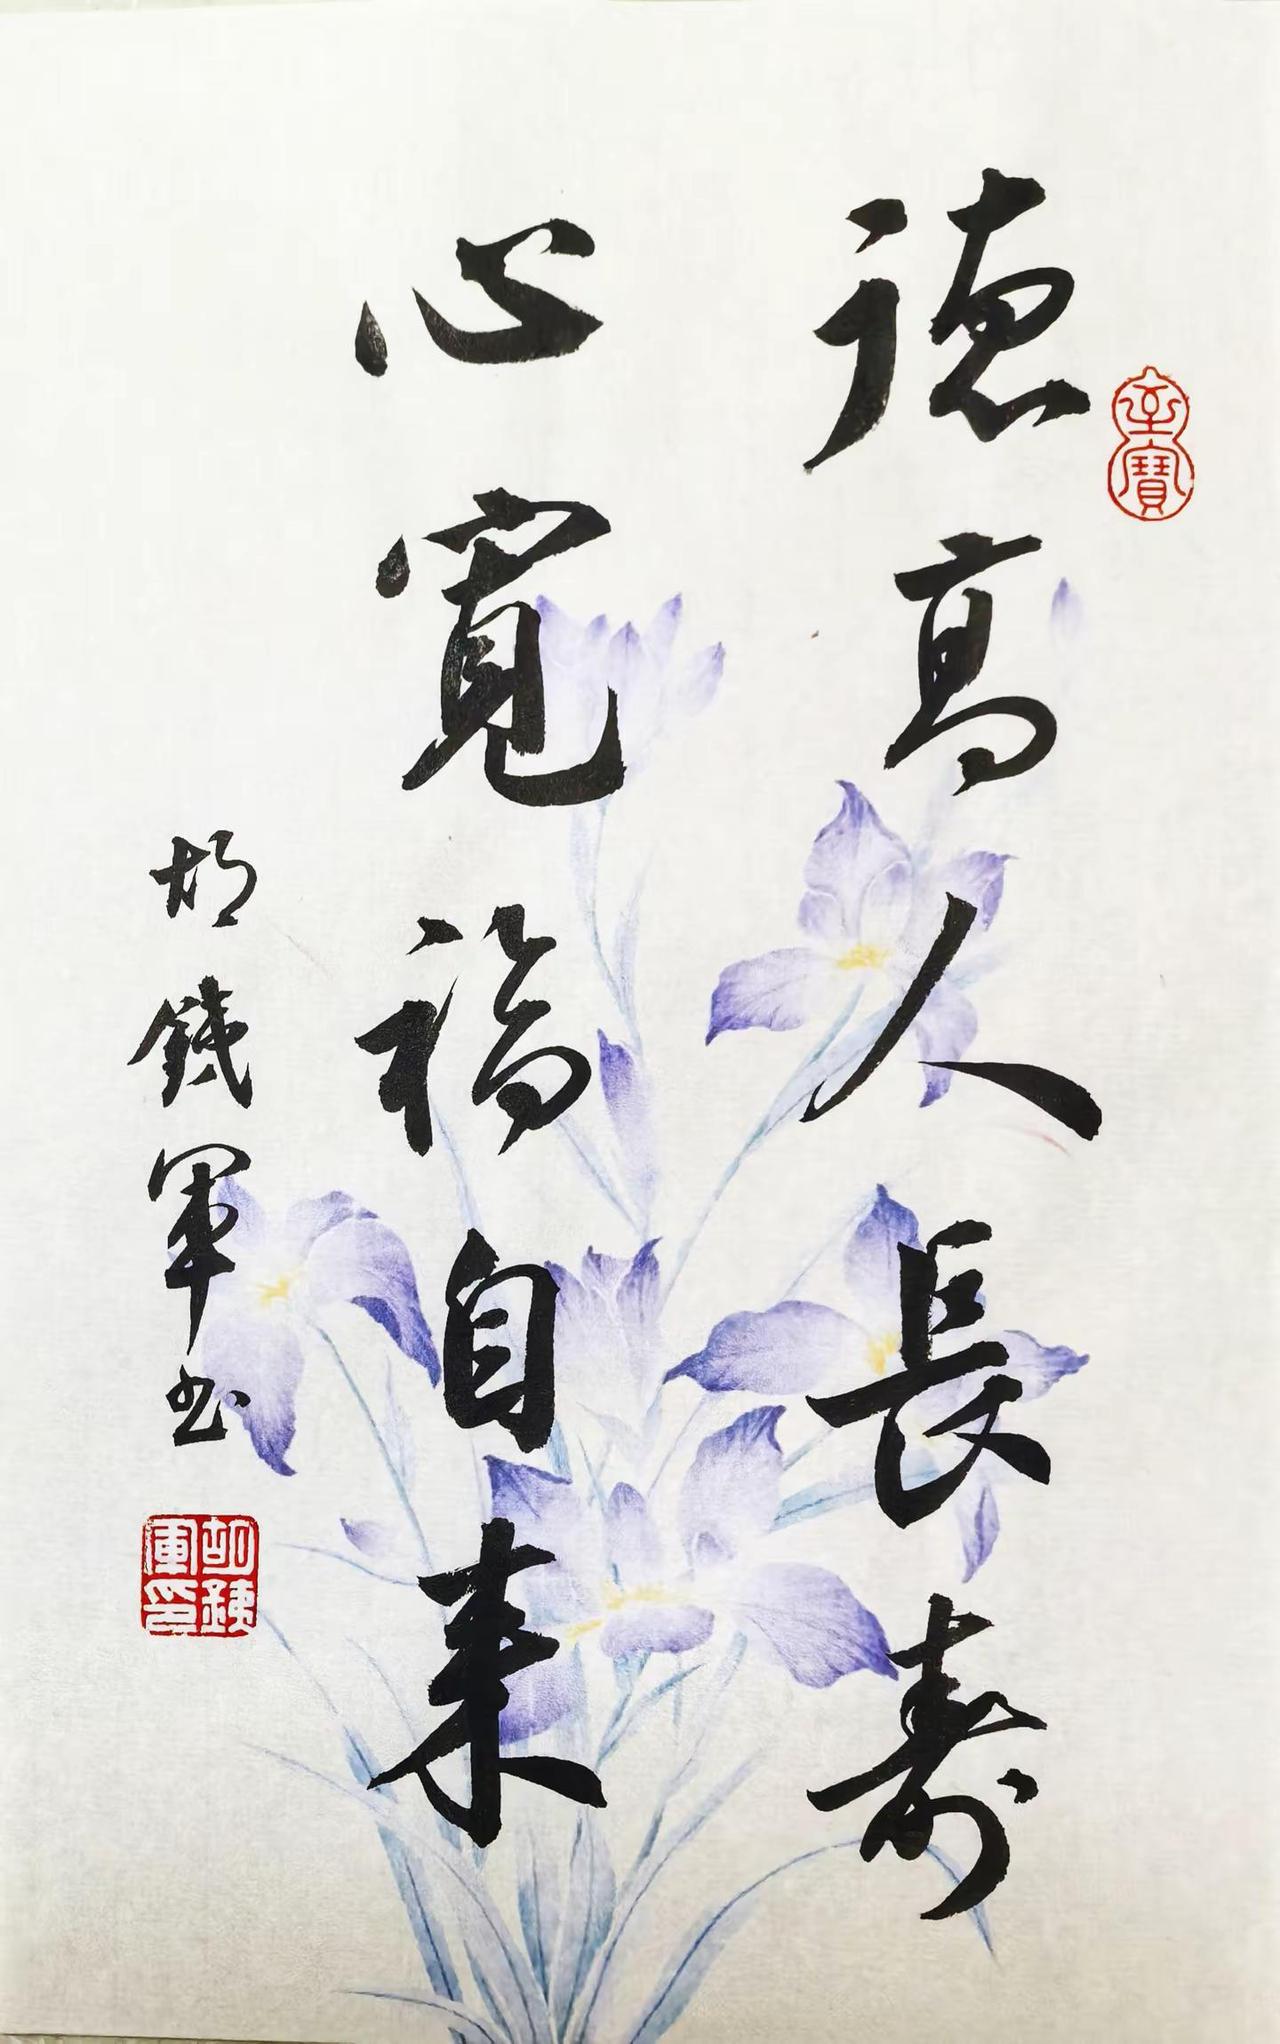 德高人長壽
心寬福自来
胡鐵軍书
至寶
胡鐵軍印